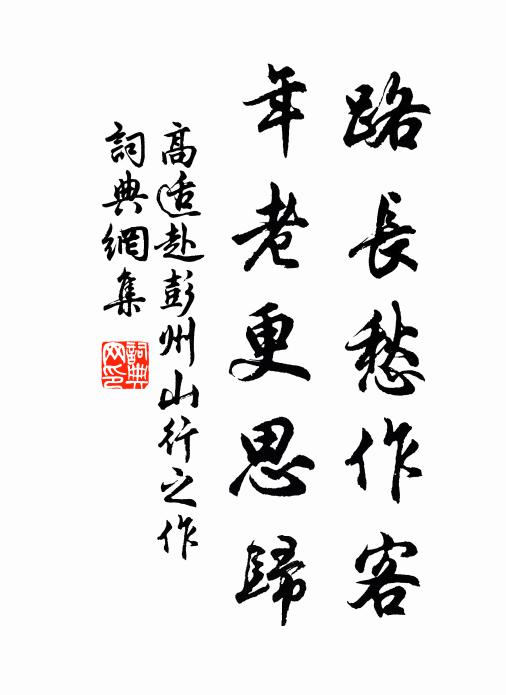 路長愁作客
年老更思歸
高适赴彭州山行之作
詞典網集
詞典
网印